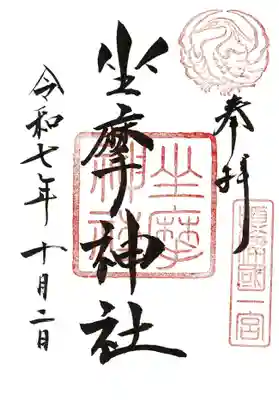 奉拝
摂津国一宮
坐摩神社
坐摩神社
令和七年十月二日